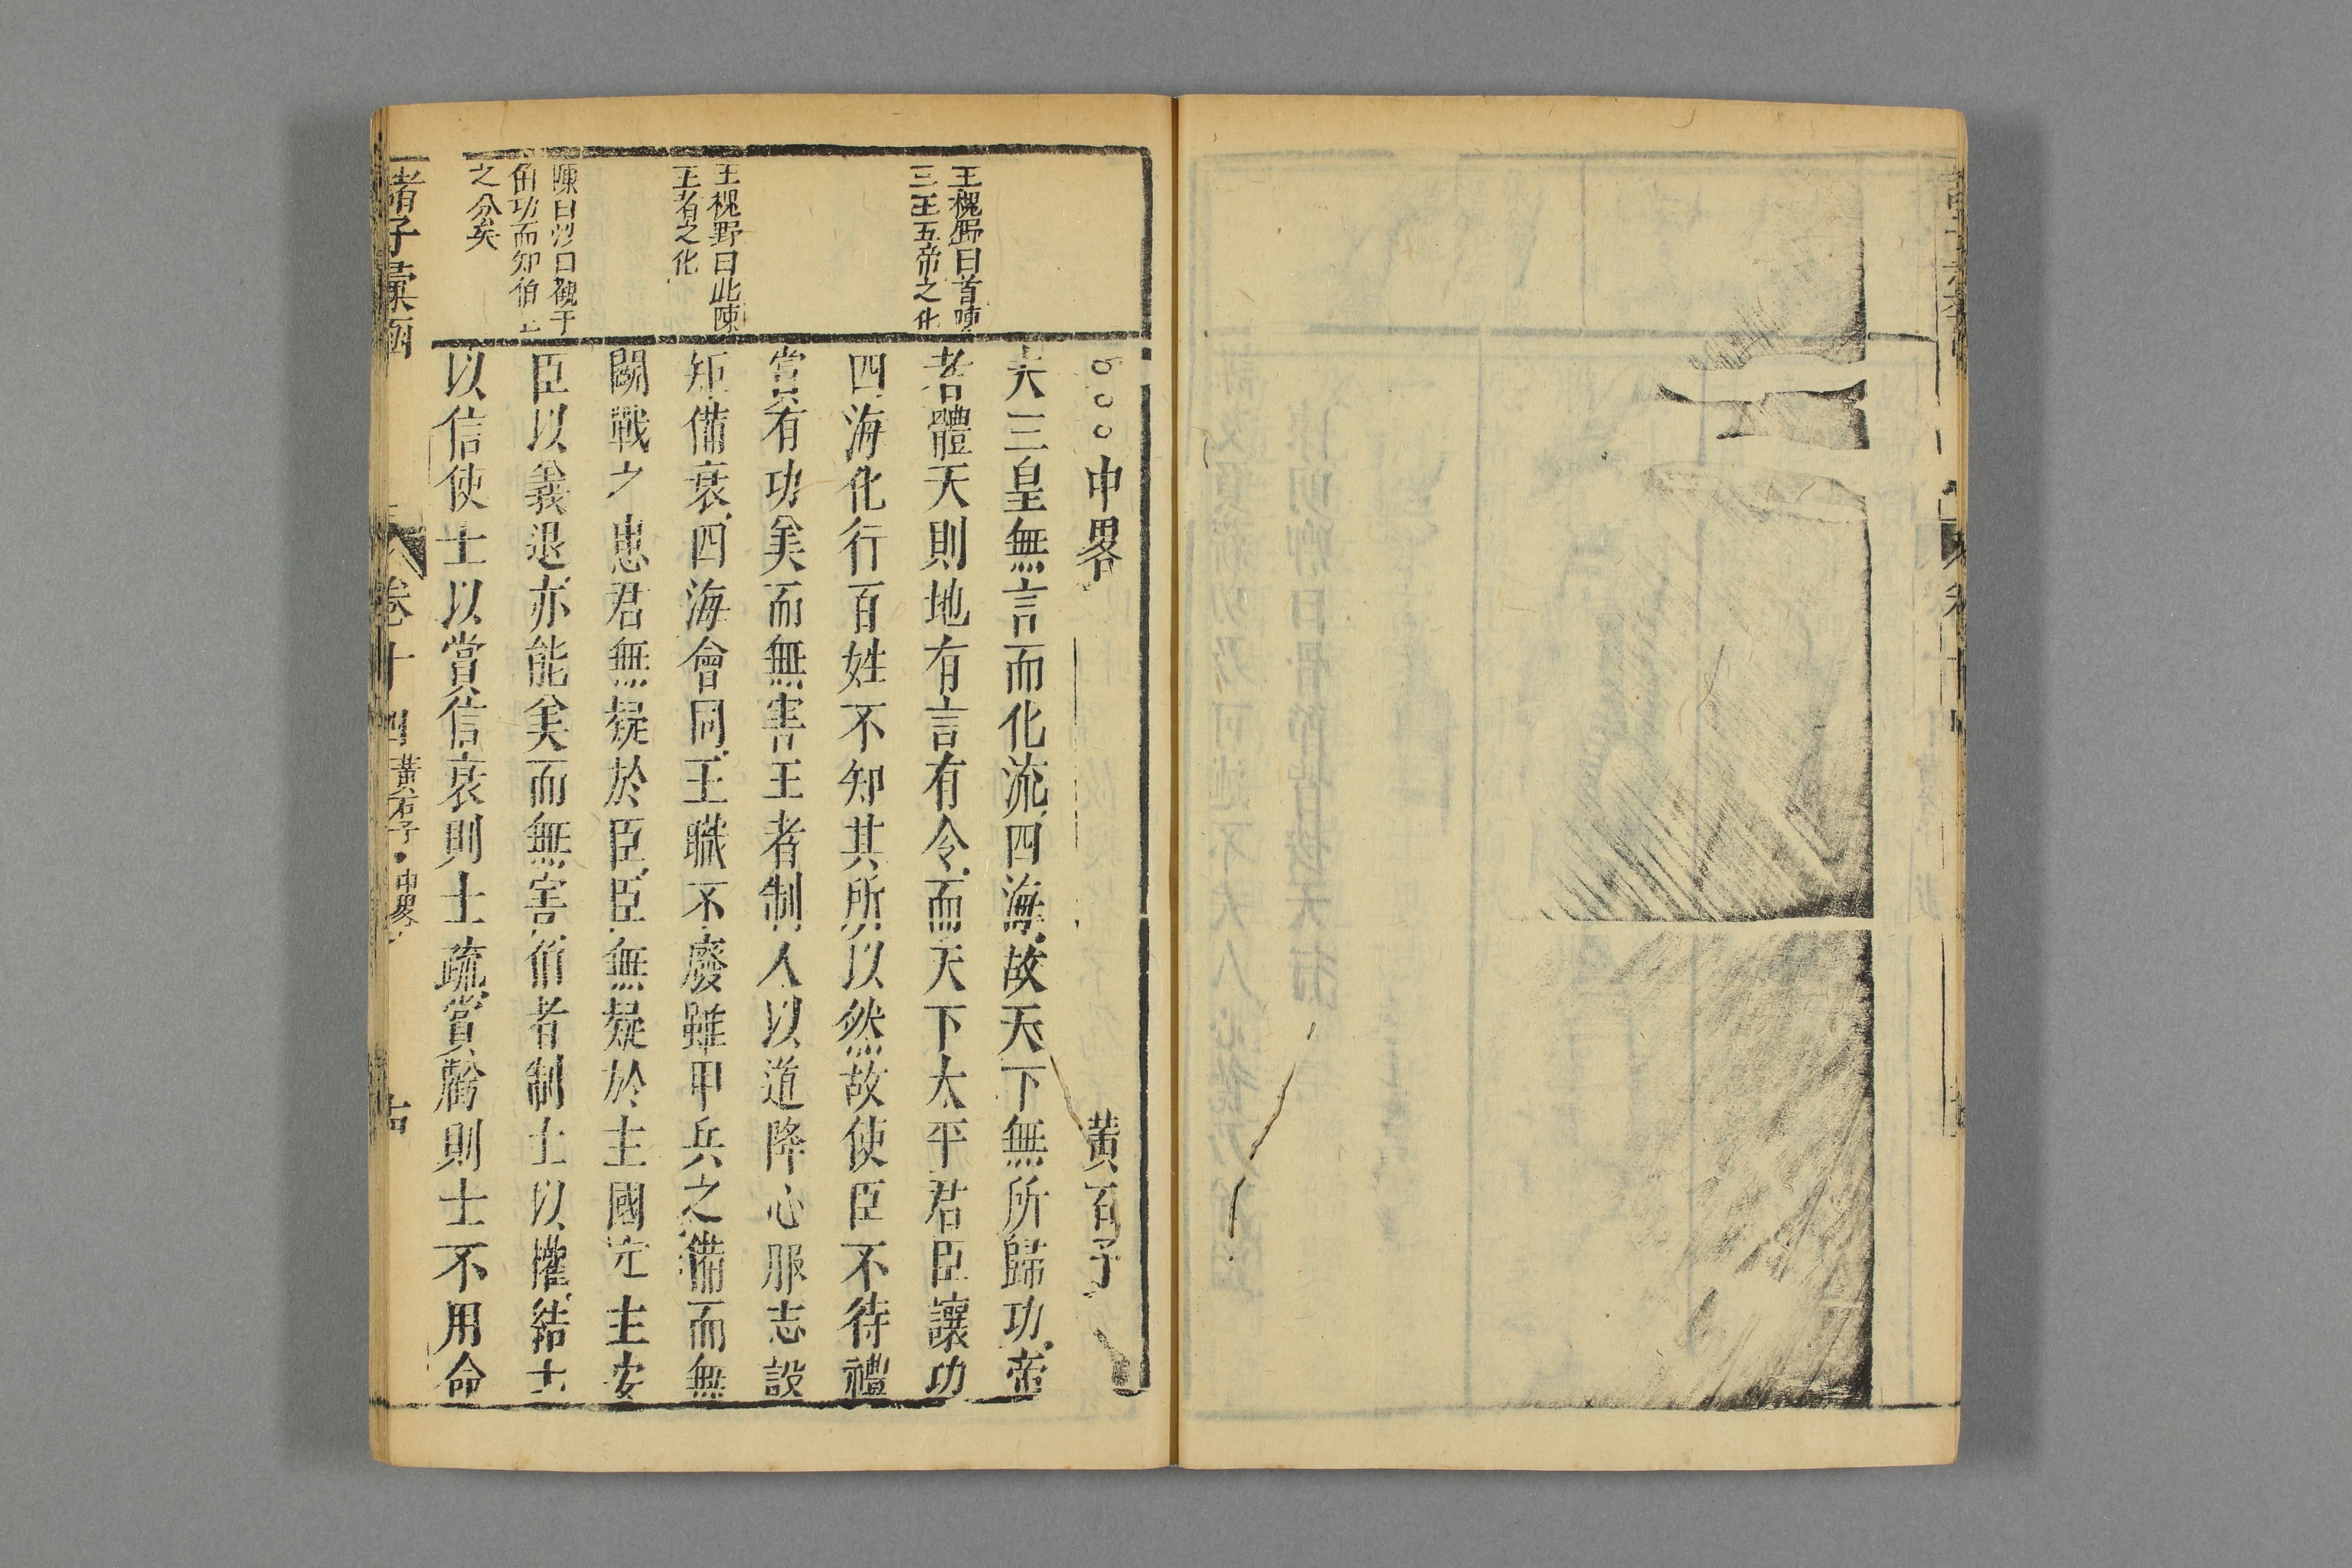 王槐野曰首陳
三王五帝之化
王槐野曰此陳
王者之化
陳曰沙口觀于
伯功而知伯王
之分矣
○○○中畧　黃石子
夫三皇無言而化流四海故天下無所歸功帝
者體天則地有言有令而天下太平君臣讓功
四海化行百姓不知其所以然故使臣不待禮
賞有功美而無害王者制人以道降心服志設
矩備衰四海會同王職不廢雖甲兵之備而無
鬭戰之患君無疑於臣臣無疑於主國定主安
臣以義退亦能美而無害伯者制士以權結士
以信使士以賞信衰則士疏賞虧則士不用命
諸子彙函
卷十四　黃石子　中畧